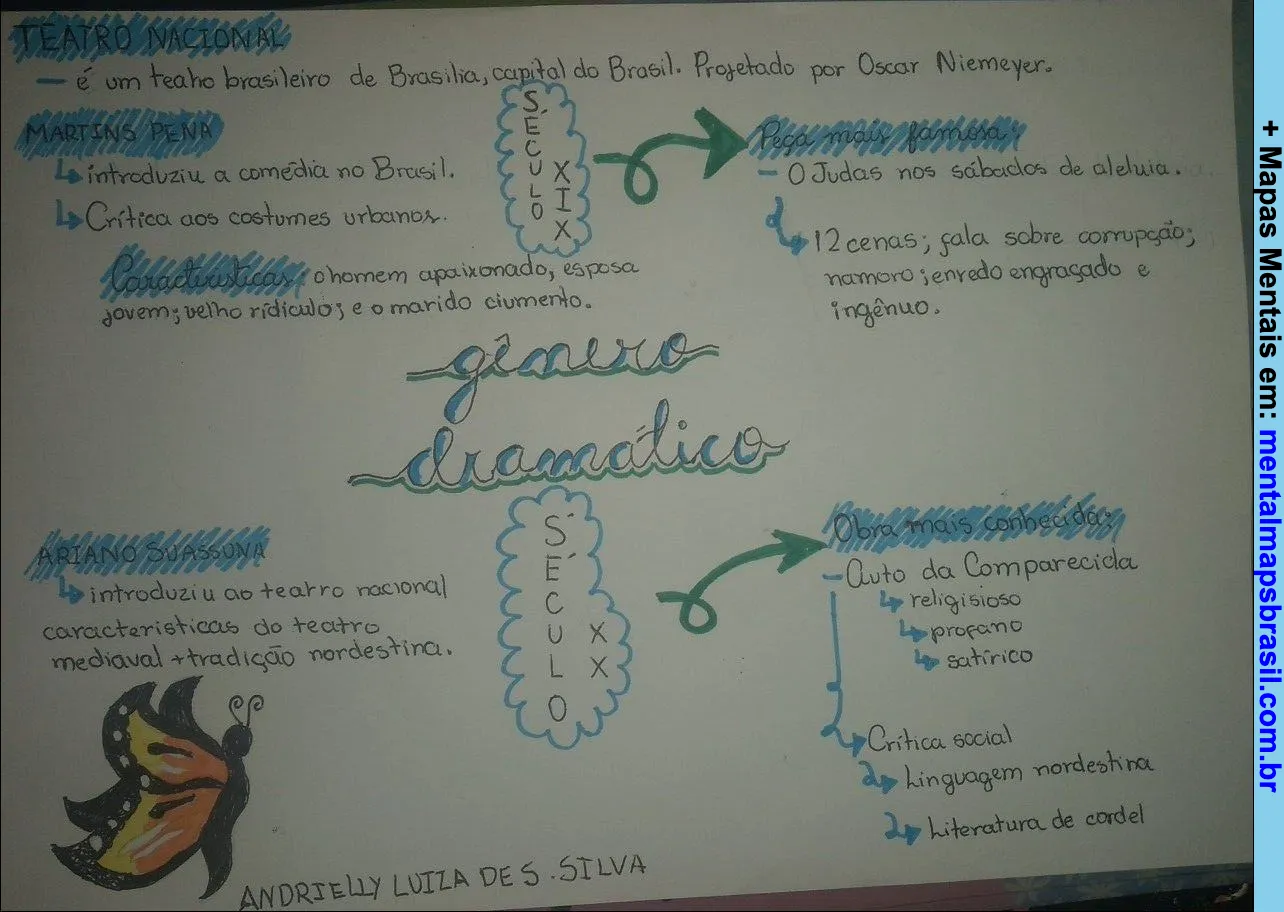 TEATRO NACIONAL
— é um teatro brasileiro de Brasília, capital do Brasil. Projetado por Oscar Niemeyer.
MARTINS PENA
introduziu a comédia no Brasil.
Crítica aos costumes urbanos.
Características: o homem apaixonado, esposa
jovem; velho rídiculo; e o marido ciumento.
SÉCULO
XIX
Peça mais famosa:
- O Judas nos sábados de aleluia.
12 cenas; fala sobre corrupção;
namoro; enredo engraçado e
ingênuo.
gênero
dramático
ARIANO SUASSUNA
introduziu ao teatro nacional
caracteristicas do teatro
mediaval + tradição nordestina.
SÉCULO
XX
Obra mais conhecida:
- Auto da Comparecida
religisioso
profano
satírico
Crítica social
Linguagem nordestina
Literatura de cordel
ANDRIELLY LUIZA DE S. SILVA
+ Mapas Mentais em: mentalmapsbrasil.com.br